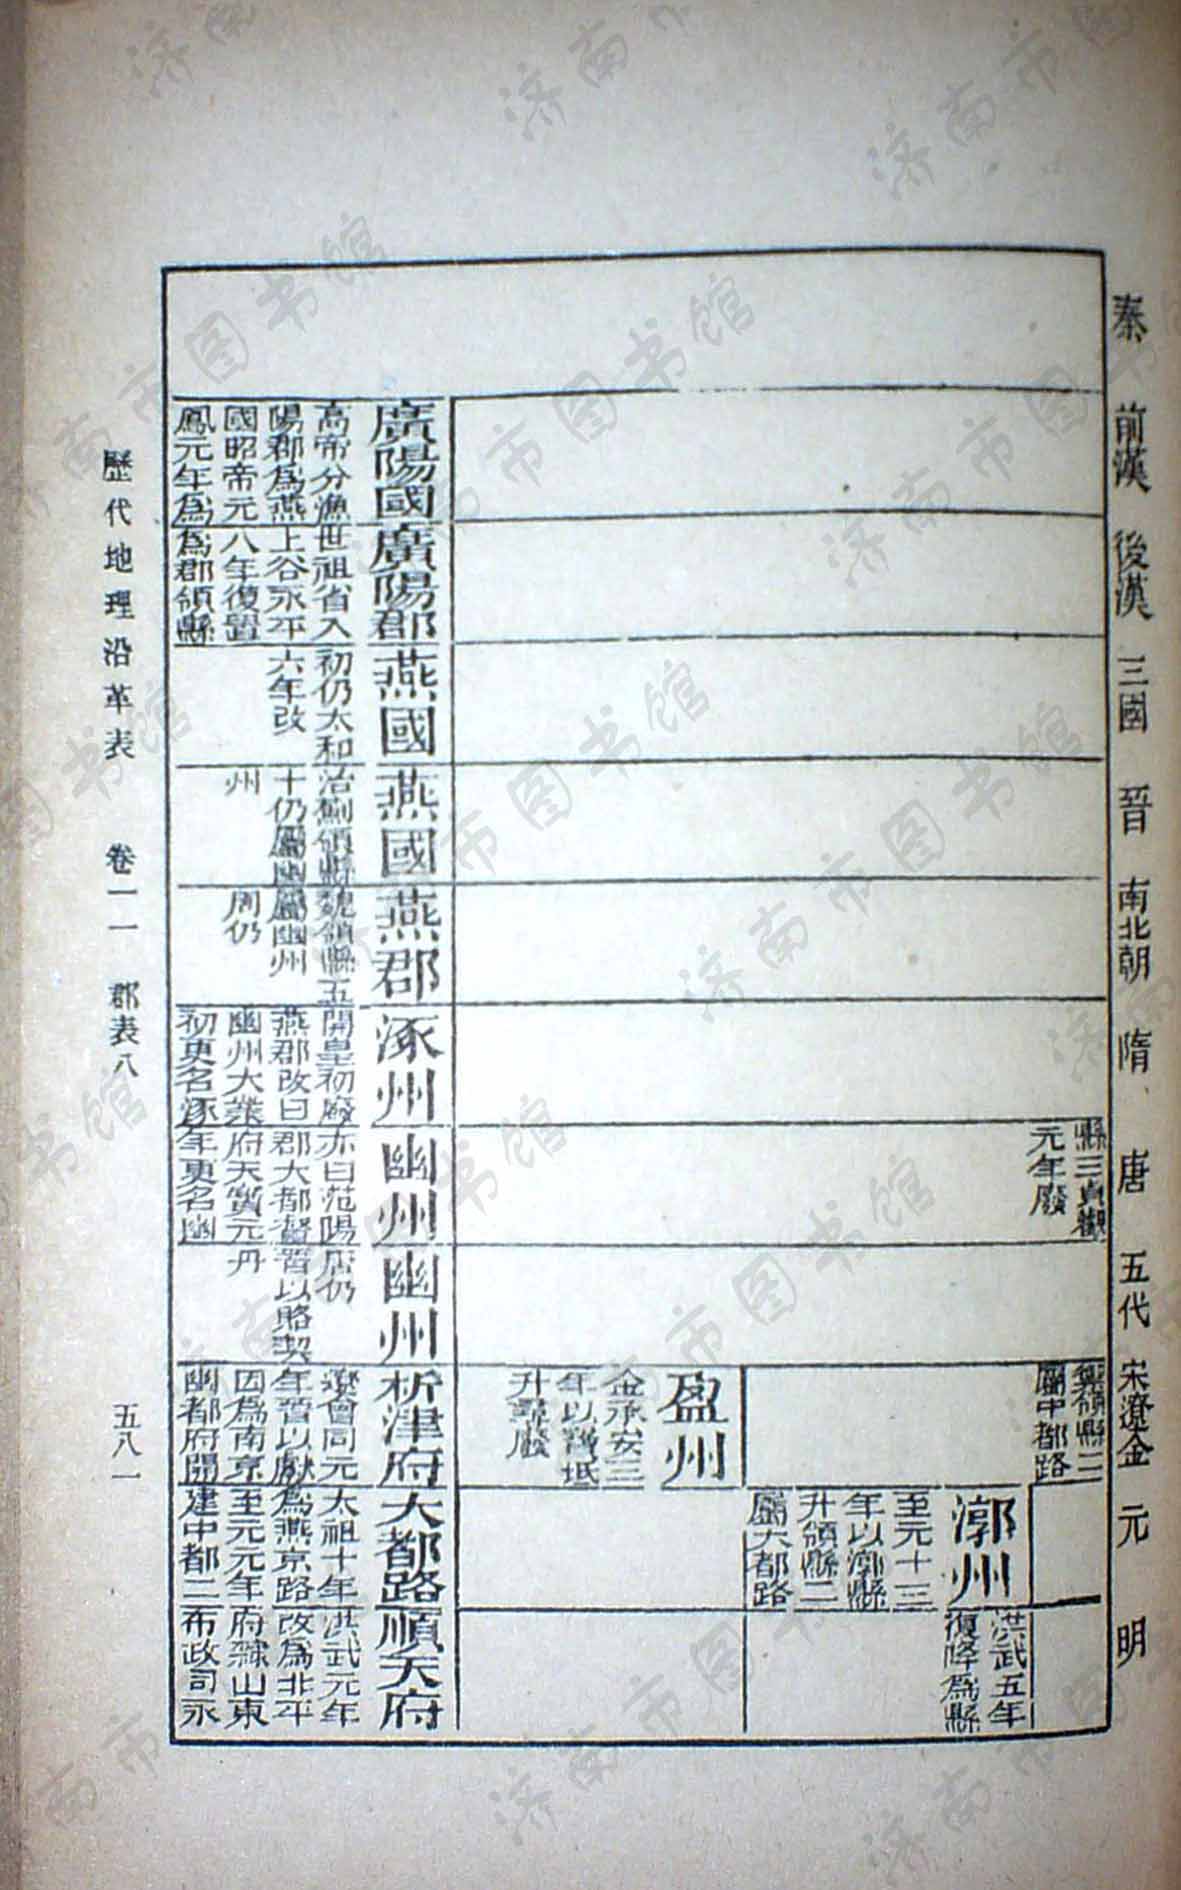 秦
前漢
後漢
三國
晉
南北朝
隋
唐
五代
宋遼金
元
明
縣三貞觀
元年廢
領縣二
屬中都路
漷州
至元十三
年以漷縣
升領縣二
屬大都路
洪武五年
復降為縣
盈州
金承安三
年以寶坻
升尋廢
廣陽國
高帝分漁
陽郡為燕
國昭帝元
鳳元年為
廣陽郡
世祖省入
上谷永平
八年復置
為郡領縣
燕國
初仍太和
六年改
燕國
治薊領縣
十仍屬幽
州
燕郡
魏領縣五
屬幽州
周仍
涿州
開皇初廢
燕郡改曰
幽州大業
初更名涿
幽州
亦曰范陽
郡大都督
府天寶元
年更名幽
幽州
唐仍
晋以賂契
丹
析津府
遼會同元
年晋以獻
因為南京
幽都府開
大都路
太祖十年
為燕京路
至元元年
建中都二
順天府
洪武元年
改為北平
府隸山東
布政司永
歷代地理沿革表 卷一一 郡表八 五八一
济南市图书馆